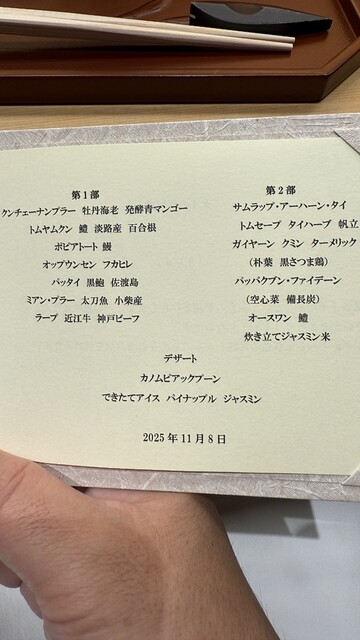 第1部
クンチェーナンプラー 牡丹海老 発酵青マンゴー
トムヤムクン 鱧 淡路産 百合根
ポピアトート 鰻
オップウンセン フカヒレ
パッタイ 黒鮑 佐渡島
ミアン・プラー 太刀魚 小柴産
ラープ 近江牛 神戸ビーフ
第2部
サムラップ・アーハーン・タイ
トムセープ タイハーブ 帆立
ガイヤーン クミン ターメリック
(朴葉 黒さつま鶏)
パッパクブン・ファイデーン
(空心菜 備長炭)
オースワン 鱧
炊き立てジャスミン米
デザート
カノムピアックプーン
できたてアイス パイナップル ジャスミン
2025年11月8日